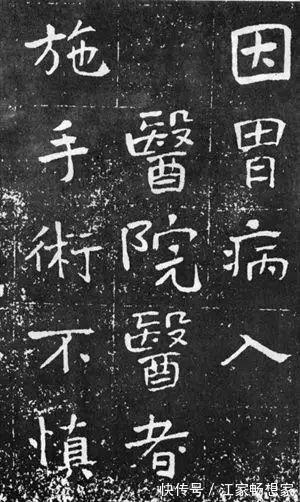 因胃病入
醫院醫者
施手術不慎
快传号/江家畅想家